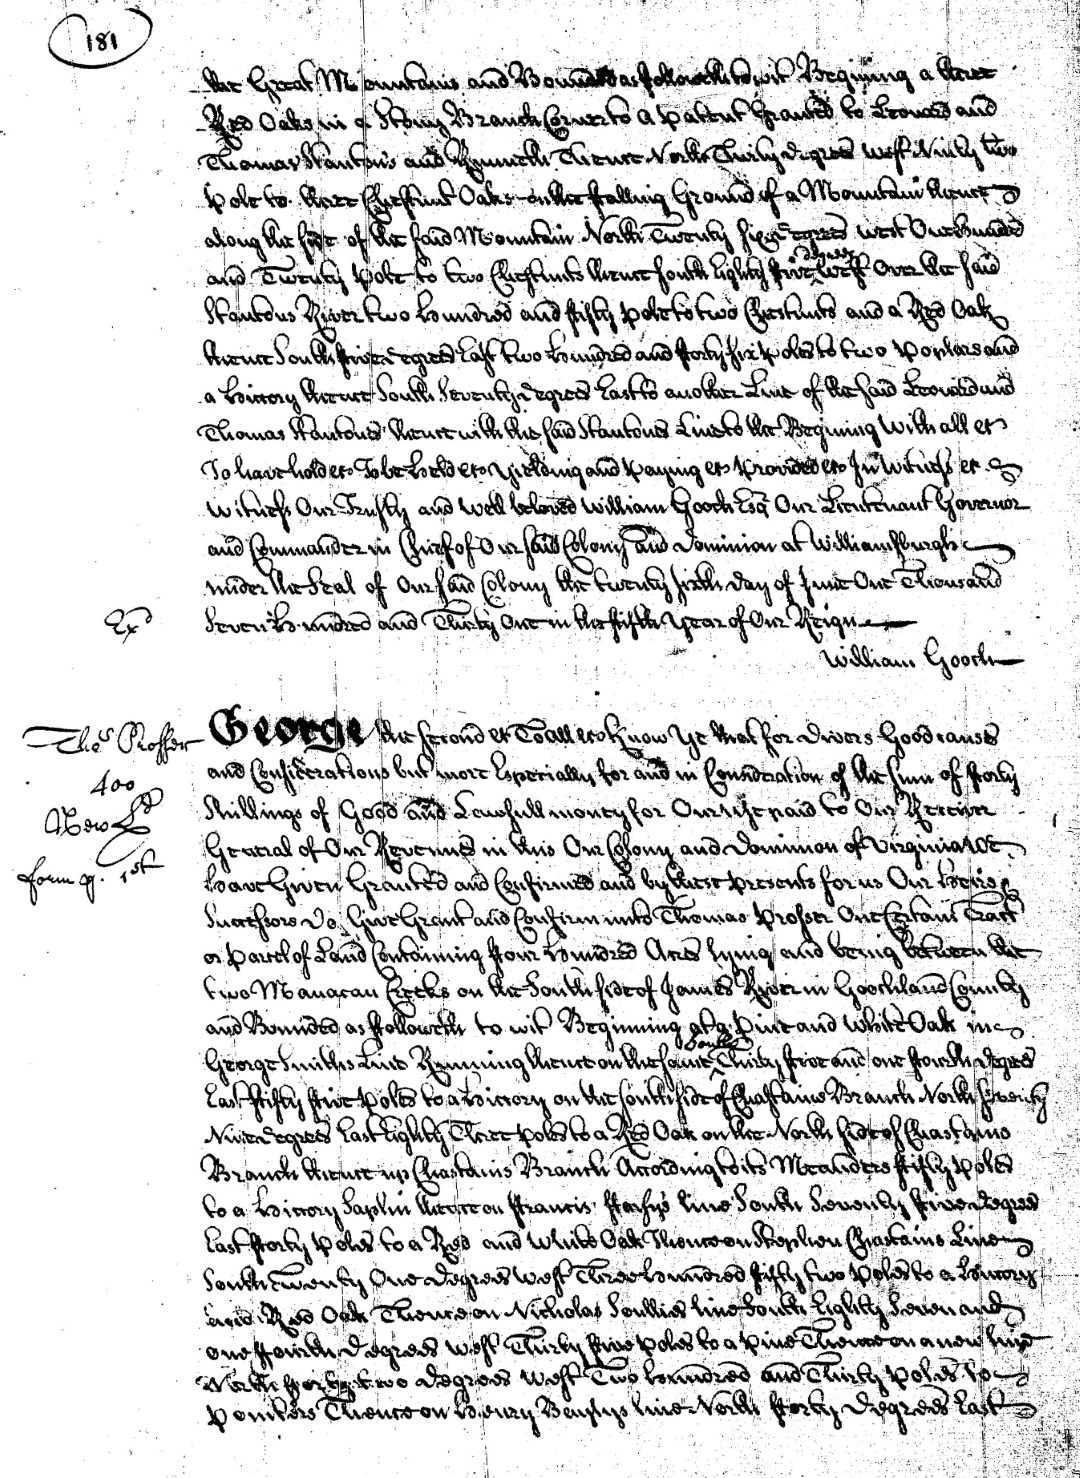 181
the Great Mountains and Bounded as followeth to wit Begining a three
Red Oaks in a Stony Branch Corner to a patent Granted to Leonard and
Thomas Stantons and Runneth Thence North Thirty degrees west Ninty two
pole to three Chestnut Oaks on the ffalling Ground of a Mountain thence
along the side of the said Mountain North Twenty six degrees west One hundred
and Twenty pole to two Chestnuts thence South Eighty ffive degrees West Over the said
Stantons River two hundred and ffifty pole to two Chestnuts and a Red Oak
thence South ffive degrees East two hundred and fforty six poles to two poplars and
a hicory thence South Seventy degrees East to another Line of the said Leonard and
Thomas Stantons thence with the said Stantons Line to the Begining With all &c
To have hold &c To be held &c Yielding and paying &c Provided &c In Witness &c
Witness Our Trusty and well beloved William Gooch Esq Our Lieutenant Governor
and Commander in Chief of Our said Colony and Dominion at Williamsburgh
under the Seal of Our said Colony the twenty sixth day of June One Thousand
Exd
Seven hundred and Thirty One in the ffifth Year of Our Reign
William Gooch
Thos Prosser
400
New Ld
form p. 1st
George the second &c To all &c Know Ye that for Divers Good causes
and Considerations but more Especially for and in Consideration of the sum of fforty
Shillings of Good and Lawfull money for Our Use paid to Our Receiver
General of Our Revenues in this Our Colony and Dominion of Virginia We
have Given Granted and Confirmed and by these presents for us Our heirs &
Successors Do Give Grant and Confirm unto Thomas Prosser One Certain Tract
or parcel of Land Containing ffour hundred Acres lying and being between the
two Manacan Creeks on the South side of James River in Goochland County
and Bounded as ffolloweth to wit Beginning at a pine and White Oak in
George Smiths Line Running thence on the same South Thirty ffive and one ffourth degrees
East ffifty ffive poles to a hicory on the South side of Chastains Branch North seventy
Nine degrees East Eighty Three poles to a Red Oak on the North side of Chastains
Branch thence up Chastains Branch According to its Meanders ffifty poles
to a hicory Saplin thence on ffrancis line South Seventy ffive degrees
East fforty poles to a Red and White Oak Thence on Stephen Chastains Line
South Twenty One degrees West Three hundred ffifty two poles to a hicory
and Red Oak Thence on Nicholas Soullies line South Eighty Seven and
one ffourth degrees West Thirty ffive poles to a pine Thence on a new line
North fforty two degrees West Two hundred and Thirty poles to
pointers Thence on Henry line North fforty degrees East